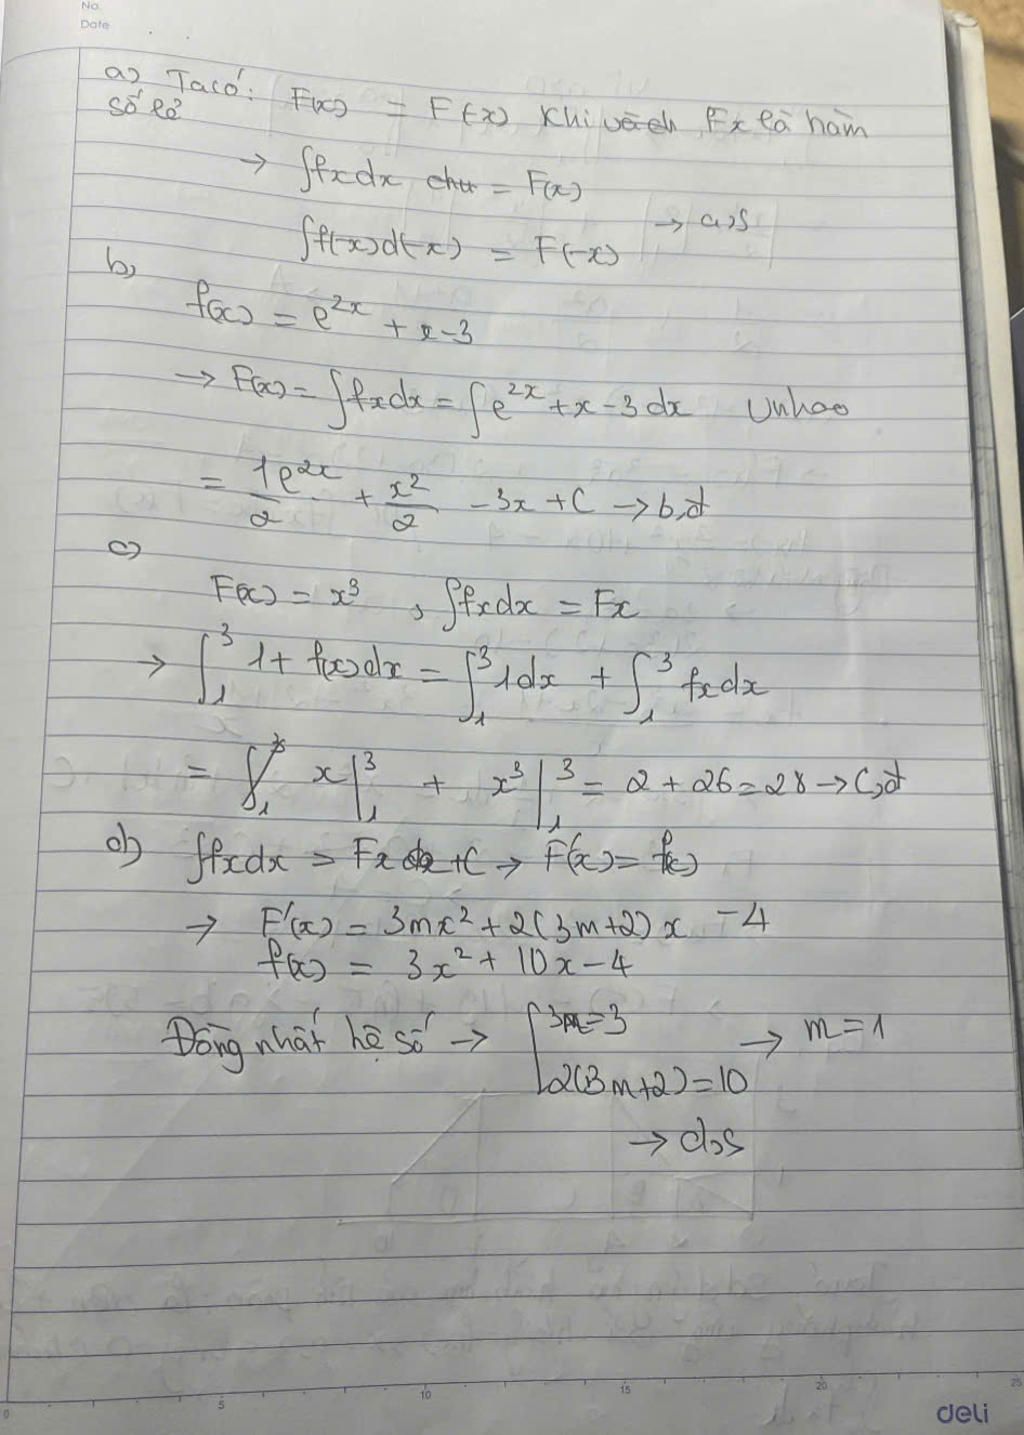 No.
Date
a) Ta có: F(x) = F(-x) khi Fx là hàm
số lẻ
→ ∫fxdx = F(x)
∫f(-x)d(-x) = F(-x) → a, S
b,
f(x) = e^2x + x - 3
→ F(x) = ∫fxdx = ∫e^2x + x - 3 dx
= 1e^2x/2 + x^2/2 - 3x + C → b, đ
c)
F(x) = x^3, ∫fxdx = Fx
→ ∫_1^3 1 + f(x)dx = ∫_1^3 1dx + ∫_1^3 fxdx
= x|_1^3 + x^3|_1^3 = 2 + 26 = 28 → C, đ
d) ∫fxdx = Fx + C → F'(x) = f(x)
→ F'(x) = 3mx^2 + 2(3m+2)x - 4
f(x) = 3x^2 + 10x - 4
Đồng nhất hệ số → { 3m = 3 → m = 1
2(3m+2) = 10
→ d, S
0 5 10 15 20 25
deli